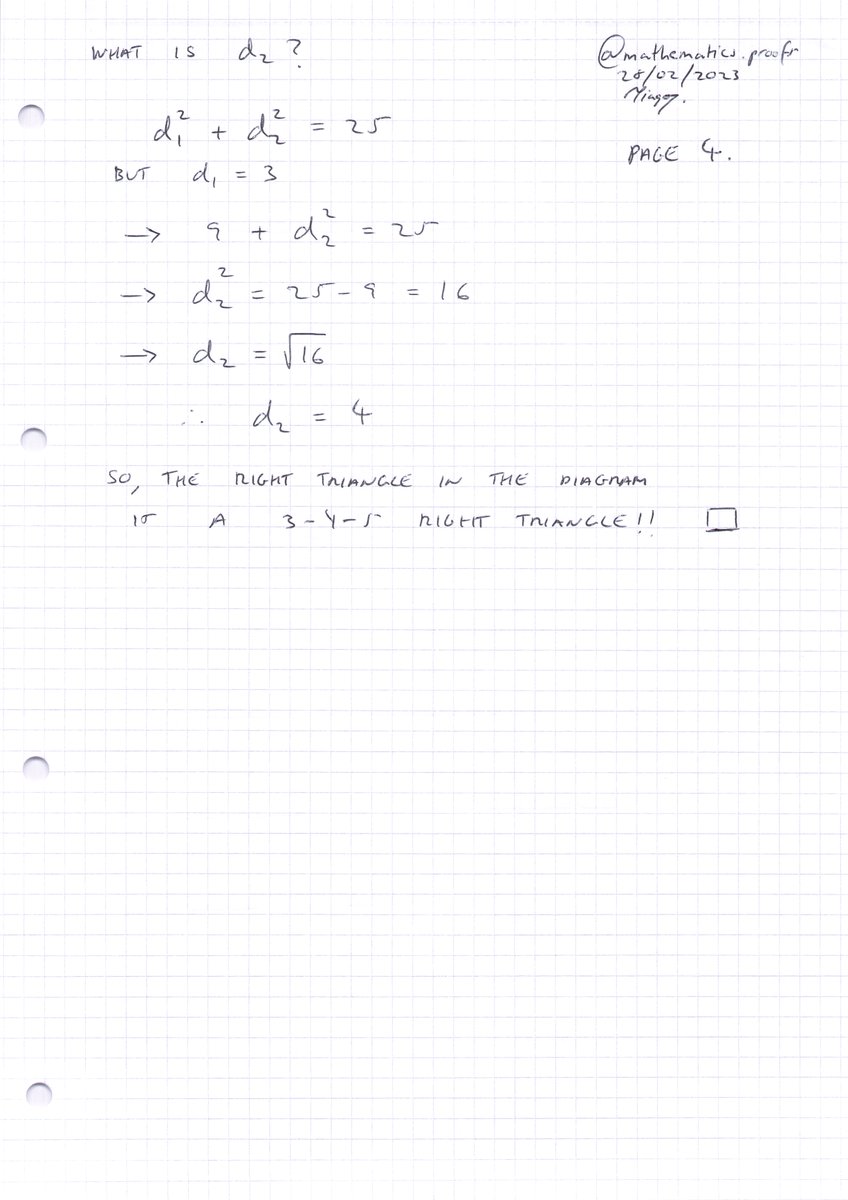 WHAT IS d₂?
@mathematics.proofs
28/02/2023
PAGE 4.
d₁² + d₂² = 25
BUT d₁ = 3
→ 9 + d₂² = 25
→ d₂² = 25 - 9 = 16
→ d₂ = √16
∴ d₂ = 4
SO, THE RIGHT TRIANGLE IN THE DIAGRAM
IS A 3-4-5 RIGHT TRIANGLE!! □